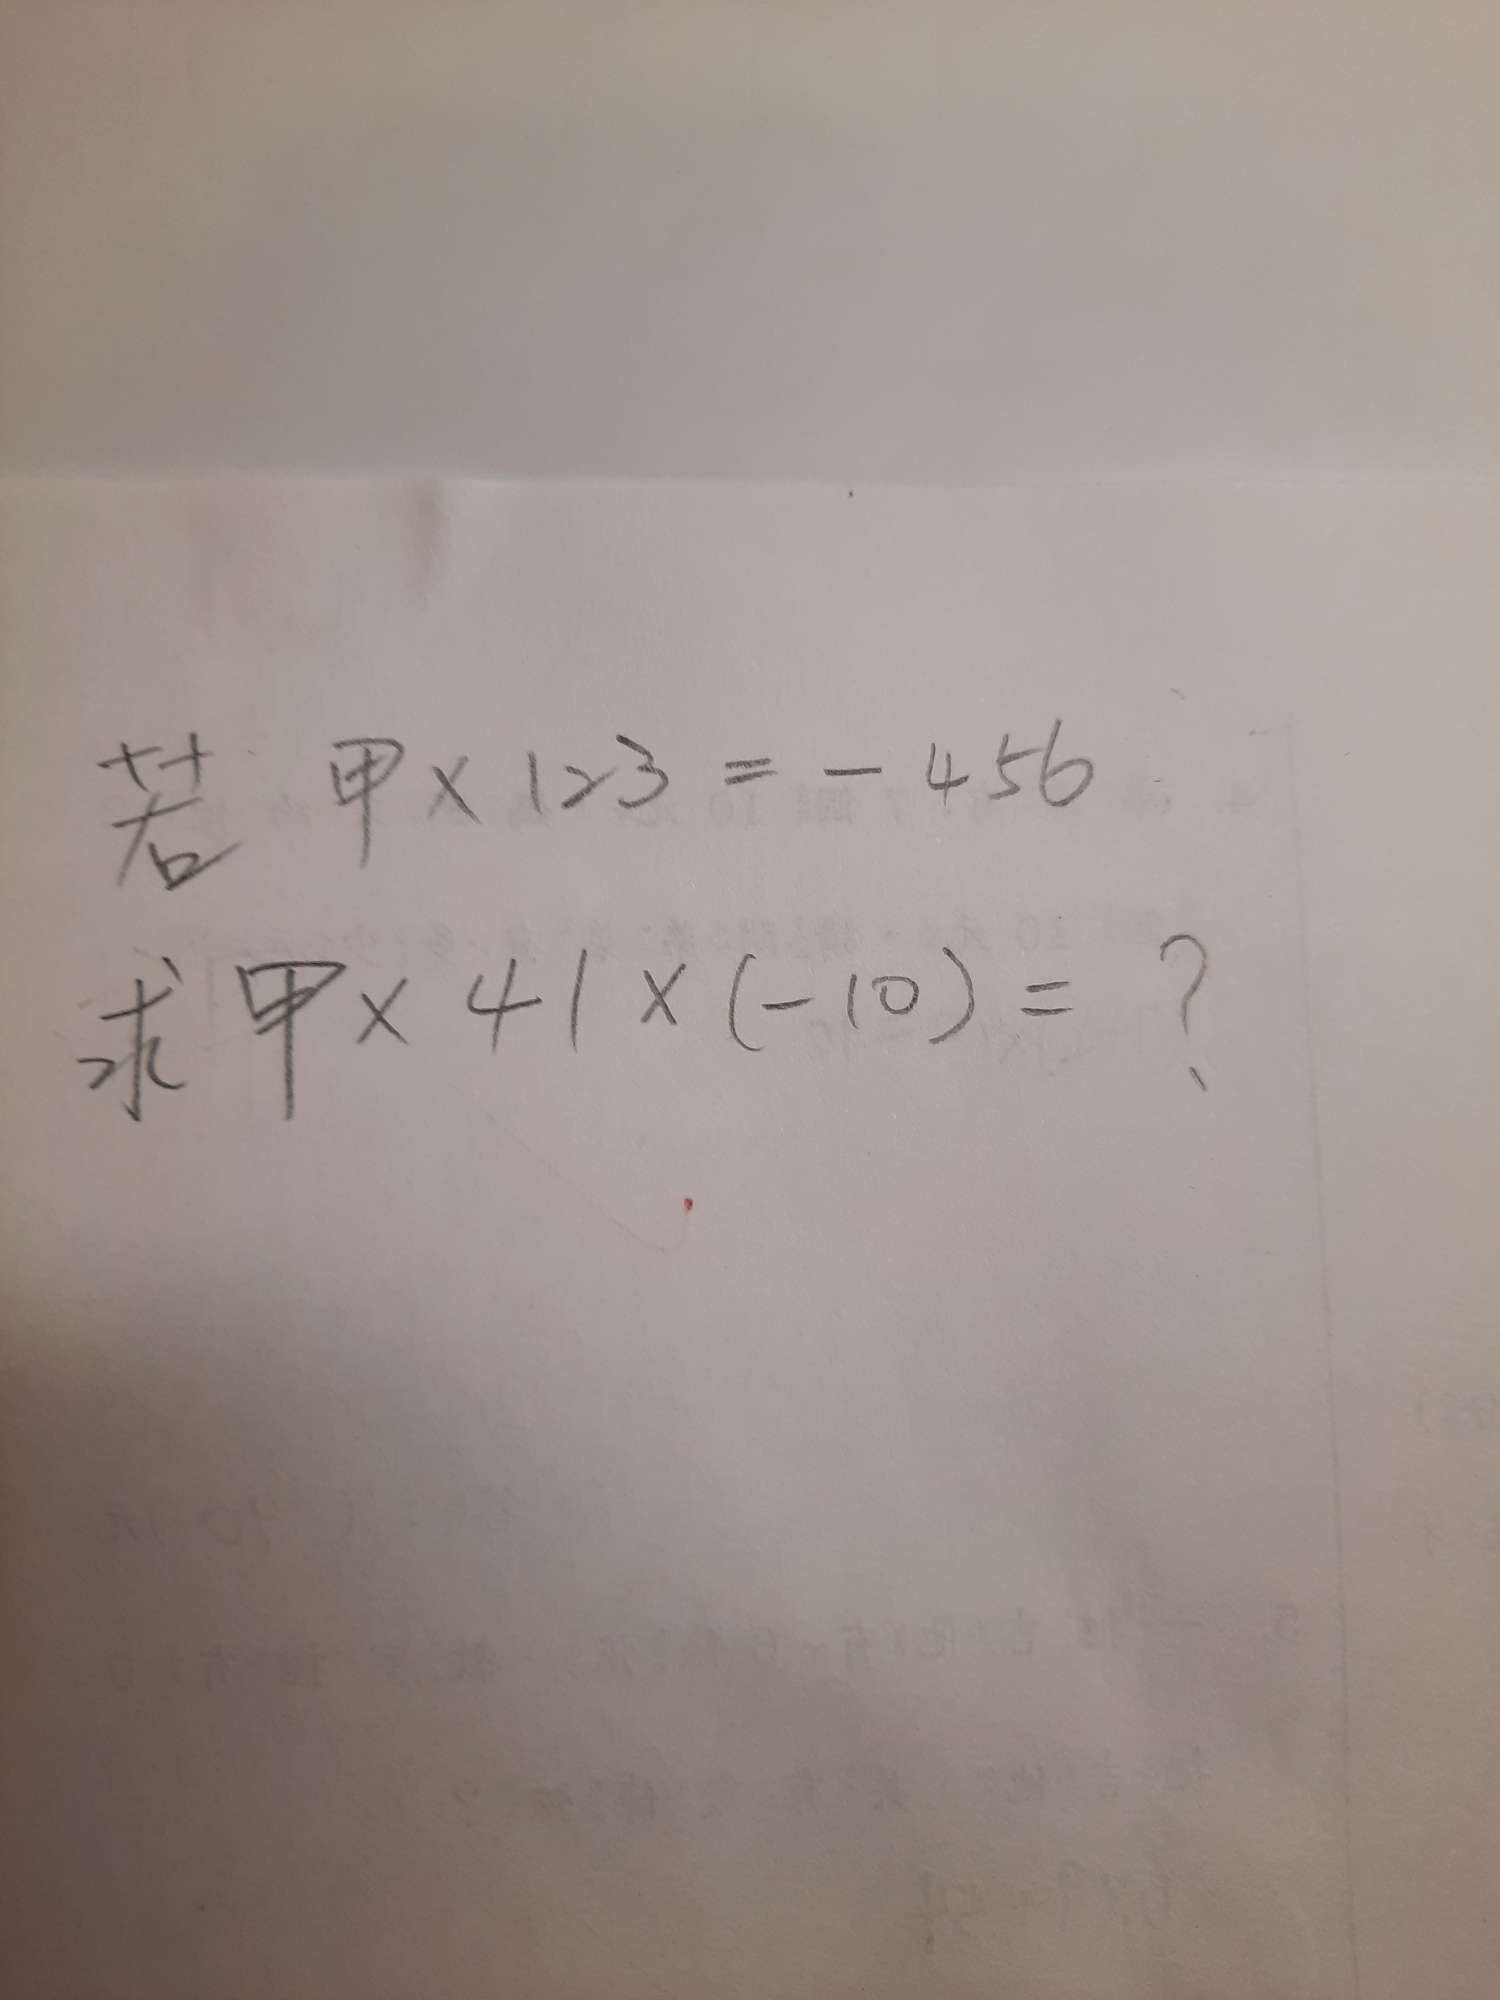 若 甲×123=-456
求甲×41×(-10)=?